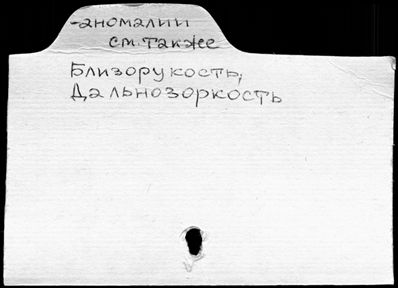 -аномалии
см. также
Близорукость,
Дальнозоркость